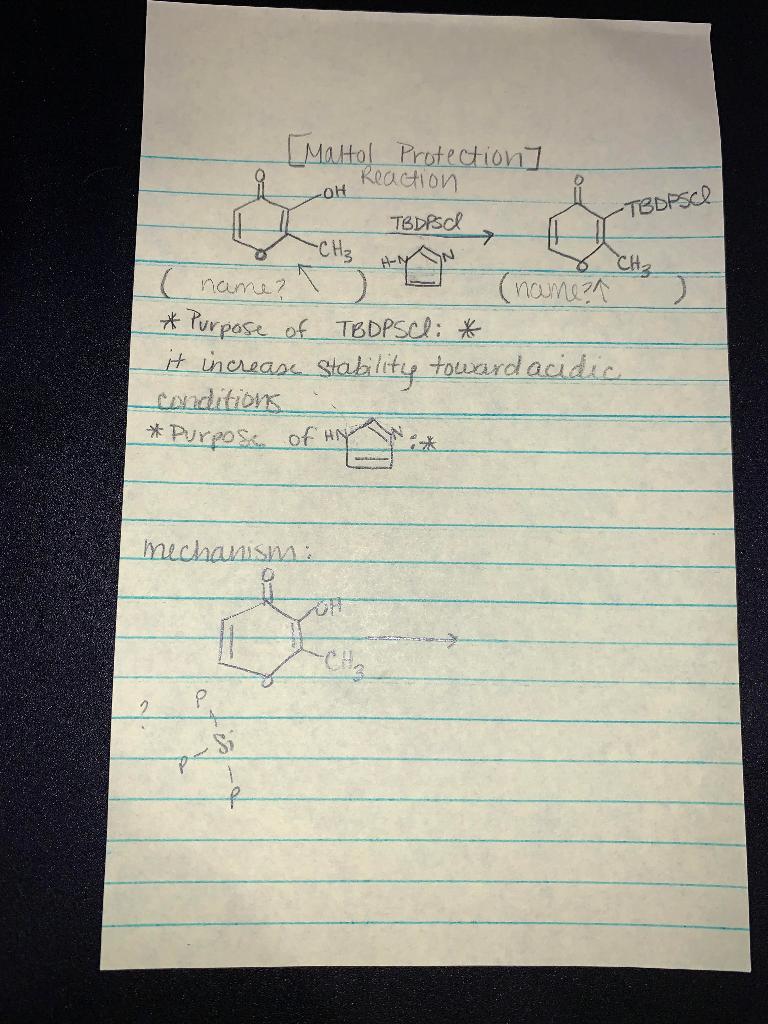 [Maltol Protection]
Reaction
O
OH
CH3
O
TBDPSCl
H-N
N
O
TBDPSCl
CH3
O
( name? )
(name? )
* Purpose of TBDPSCl: *
it increase stability toward acidic
conditions
* Purpose of HN N :*
mechanism:
O
OH
CH3
O
?
P
Si
P
P